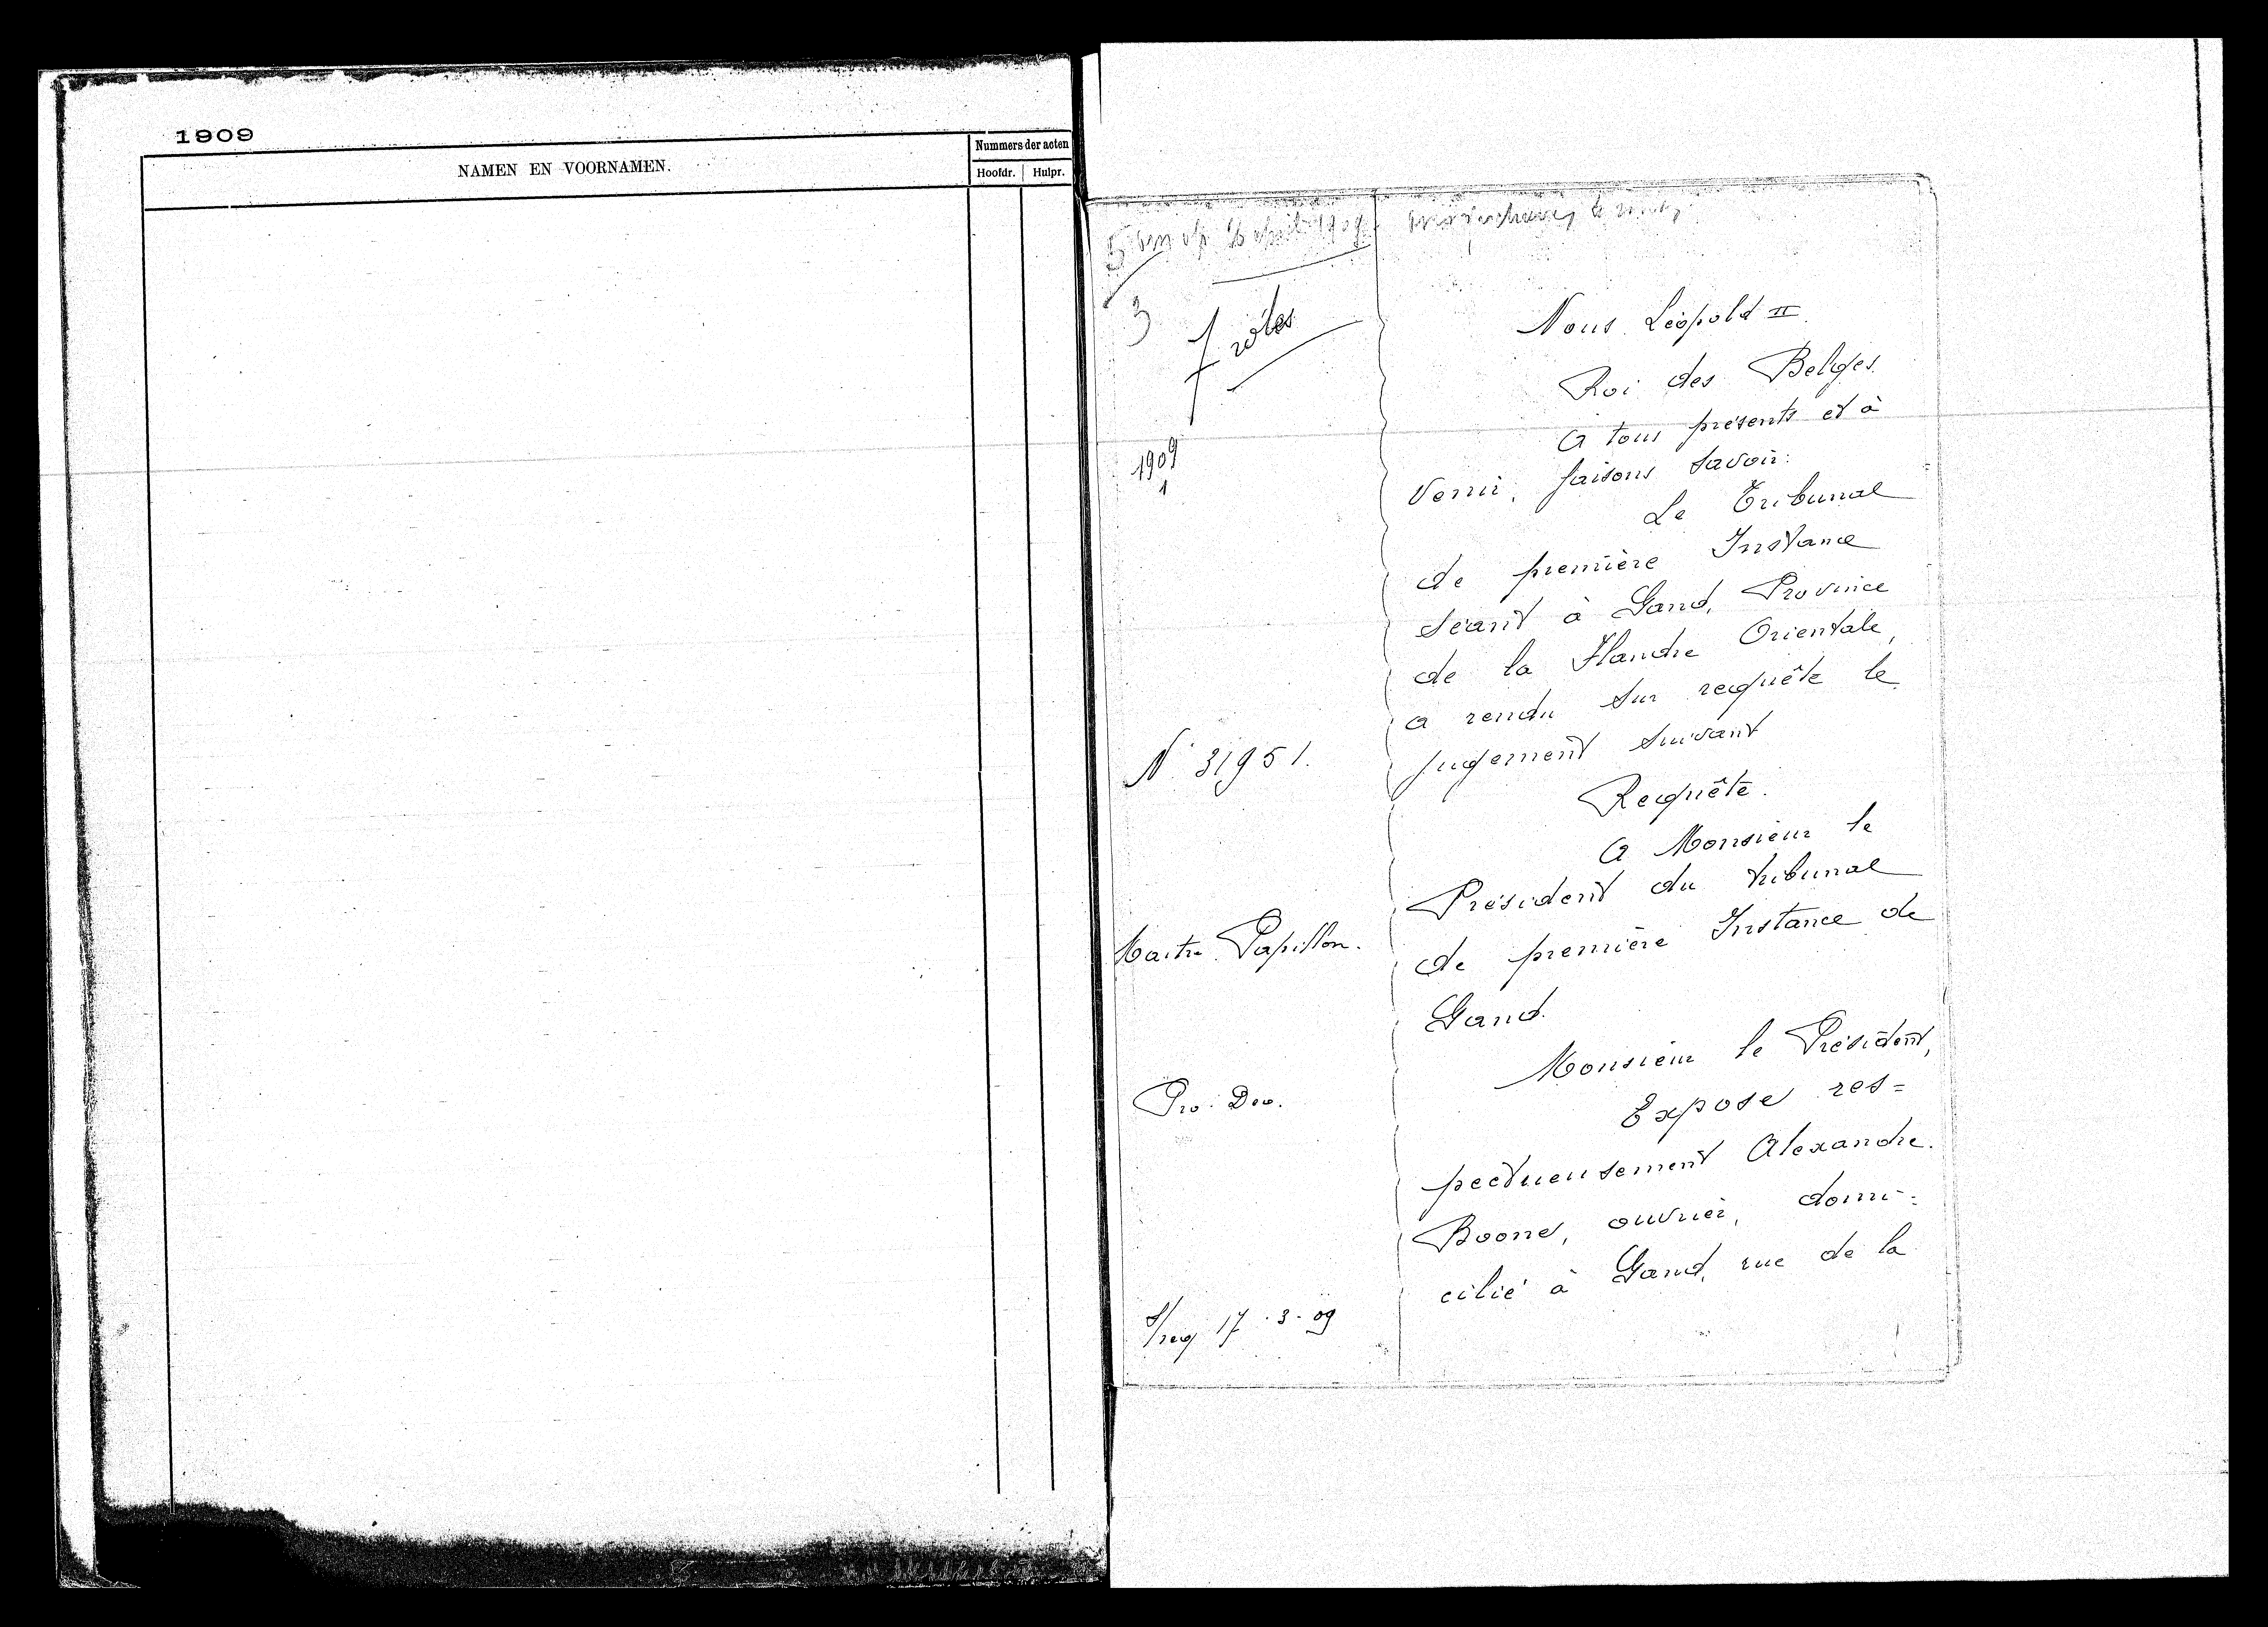 1909
NAMEN EN VOORNAMEN.
Nummers der acten
Hoofdr. Hulpr.
3
7 rôles
1909
1
N° 31951.
Maitre Papillon.
Pro Deo.
S/req 17.3.09
Nous Léopold II
Roi des Belges
A tous présents et à
venir, faisons savoir:
Le Tribunal
de première Instance
séant à Gand, Province
de la Flandre Orientale,
a rendu sur requête le
jugement suivant
Requête.
A Monsieur le
Président du tribunal
de première Instance de
Gand.
Monsieur le Président,
Expose res=
pectueusement Alexandre
Boone, ouvrier, domi=
cilié à Gand, rue de la